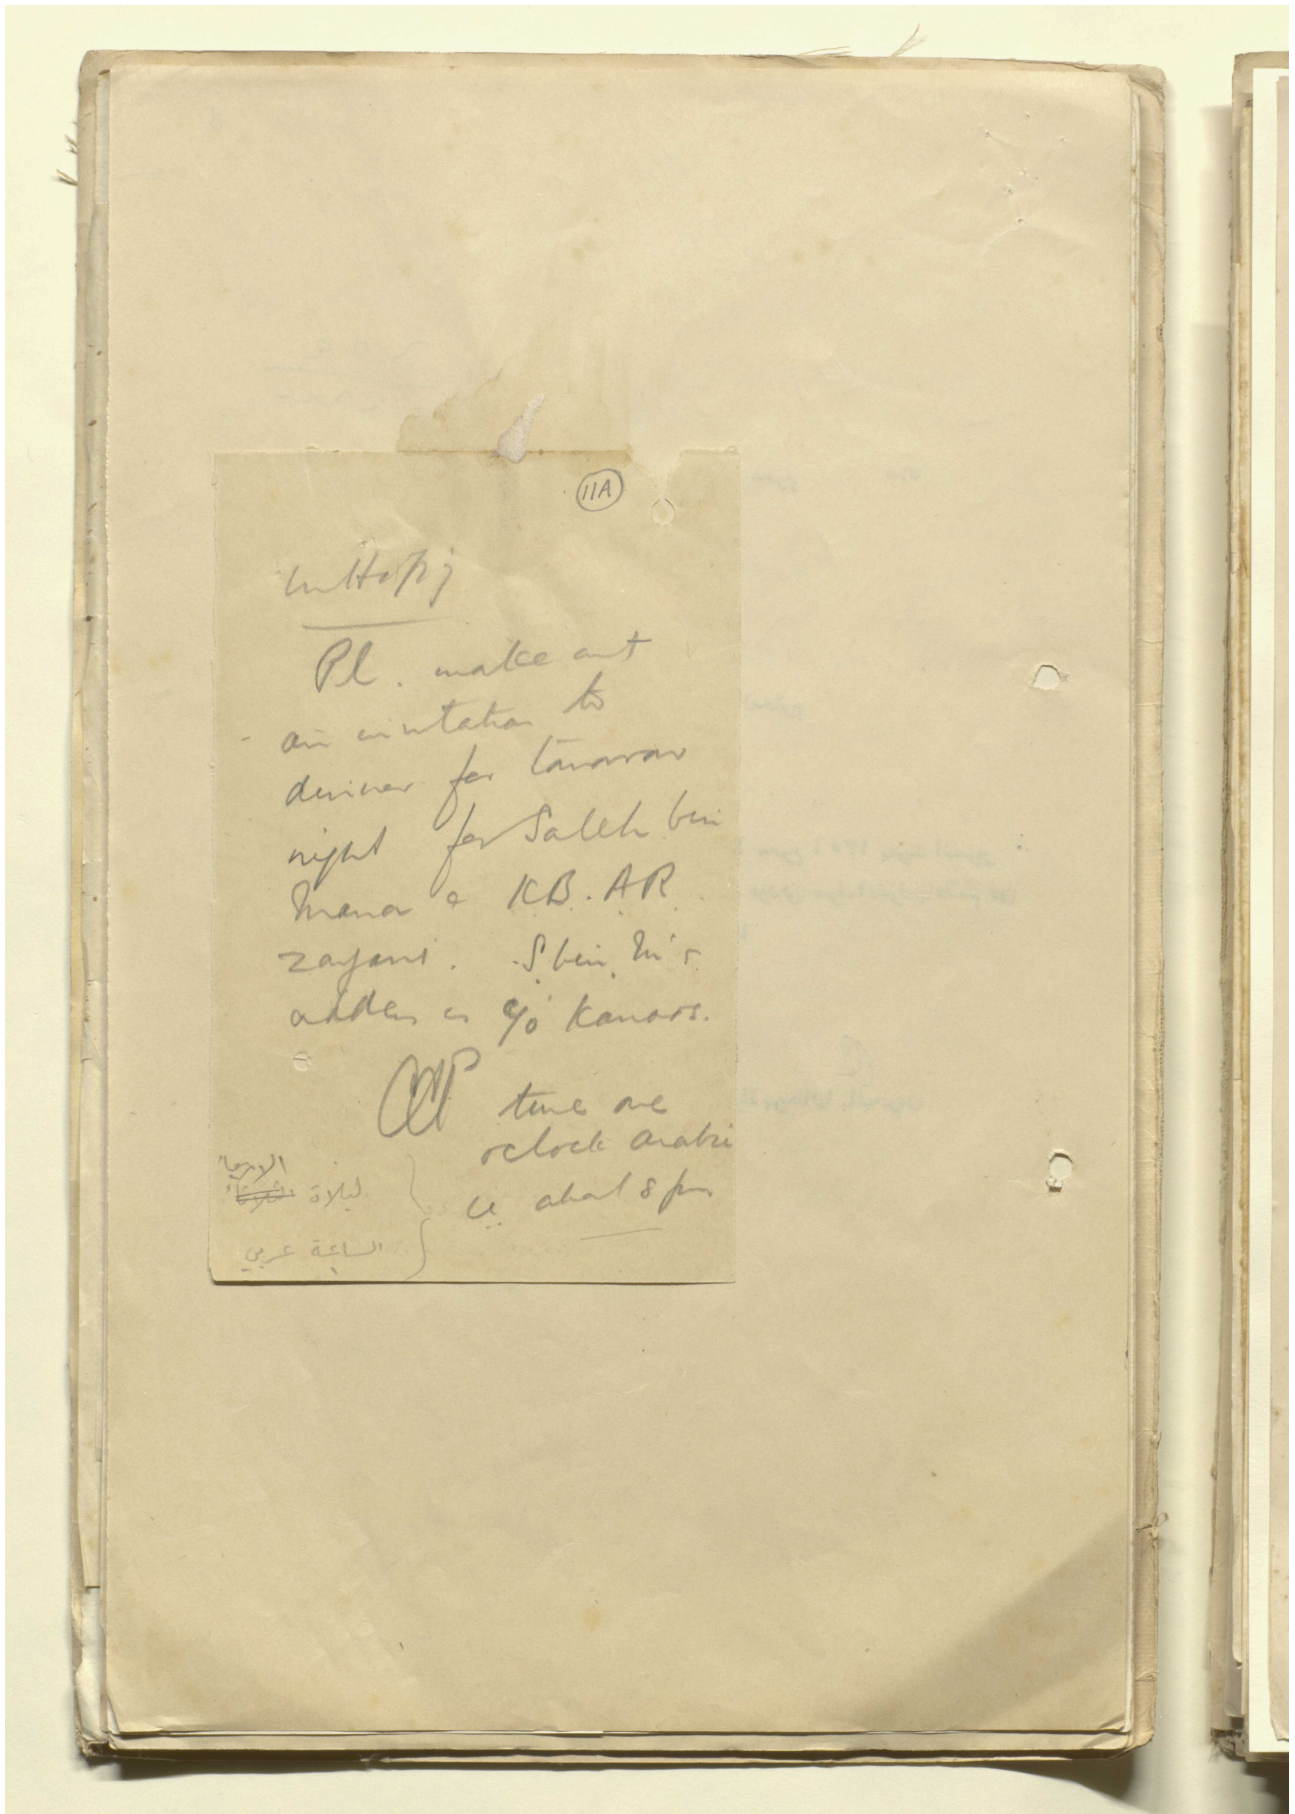 11A
Pl. make out
an invitation to
dinner for tomorrow
night for Saleh bin
Mana & KB. AR
Zayani. S bin M's
address is c/o Kanoos.
time one
oclock Arabic
ie about 8 pm
الاربعا
ليلة الثلاثاء
الساعة عربي